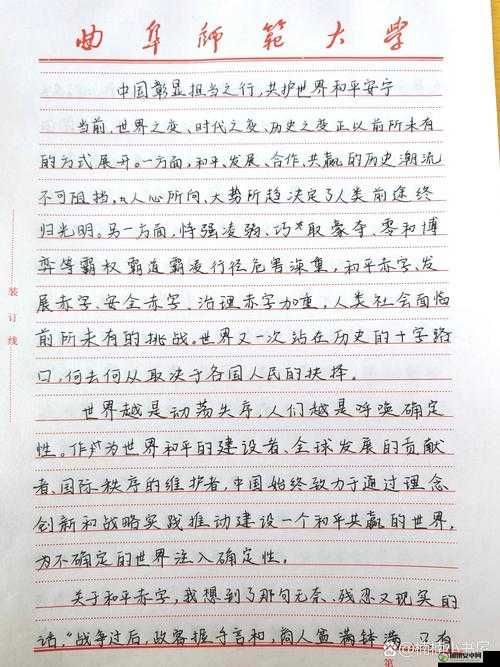 曲阜师范大学
中国彰显担当之行，共护世界和平安宁
当前，世界之变、时代之变、历史之变正以前所未有
的方式展开。一方面，和平、发展、合作、共赢的历史潮流
不可阻挡，人心所向、大势所趋决定了人类前途终
归光明。另一方面，恃强凌弱、巧取豪夺、零和博
弈等霸权霸道霸凌行径危害深重，和平赤字、发
展赤字、安全赤字、治理赤字加重，人类社会面临
前所未有的挑战。世界又一次站在历史的十字路
口，何去何从取决于各国人民的抉择。
世界越是动荡失序，人们越是呼唤确定
性。作为世界和平的建设者、全球发展的贡献
者、国际秩序的维护者，中国始终致力于通过理念
创新和战略实践推动建设一个和平共赢的世界，
为不确定的世界注入确定性。
关于和平赤字，我想到了那句无奈、残忍又现实的
话，“战争过后，政客握手言和，商人富满钵满，只有
装订线
第